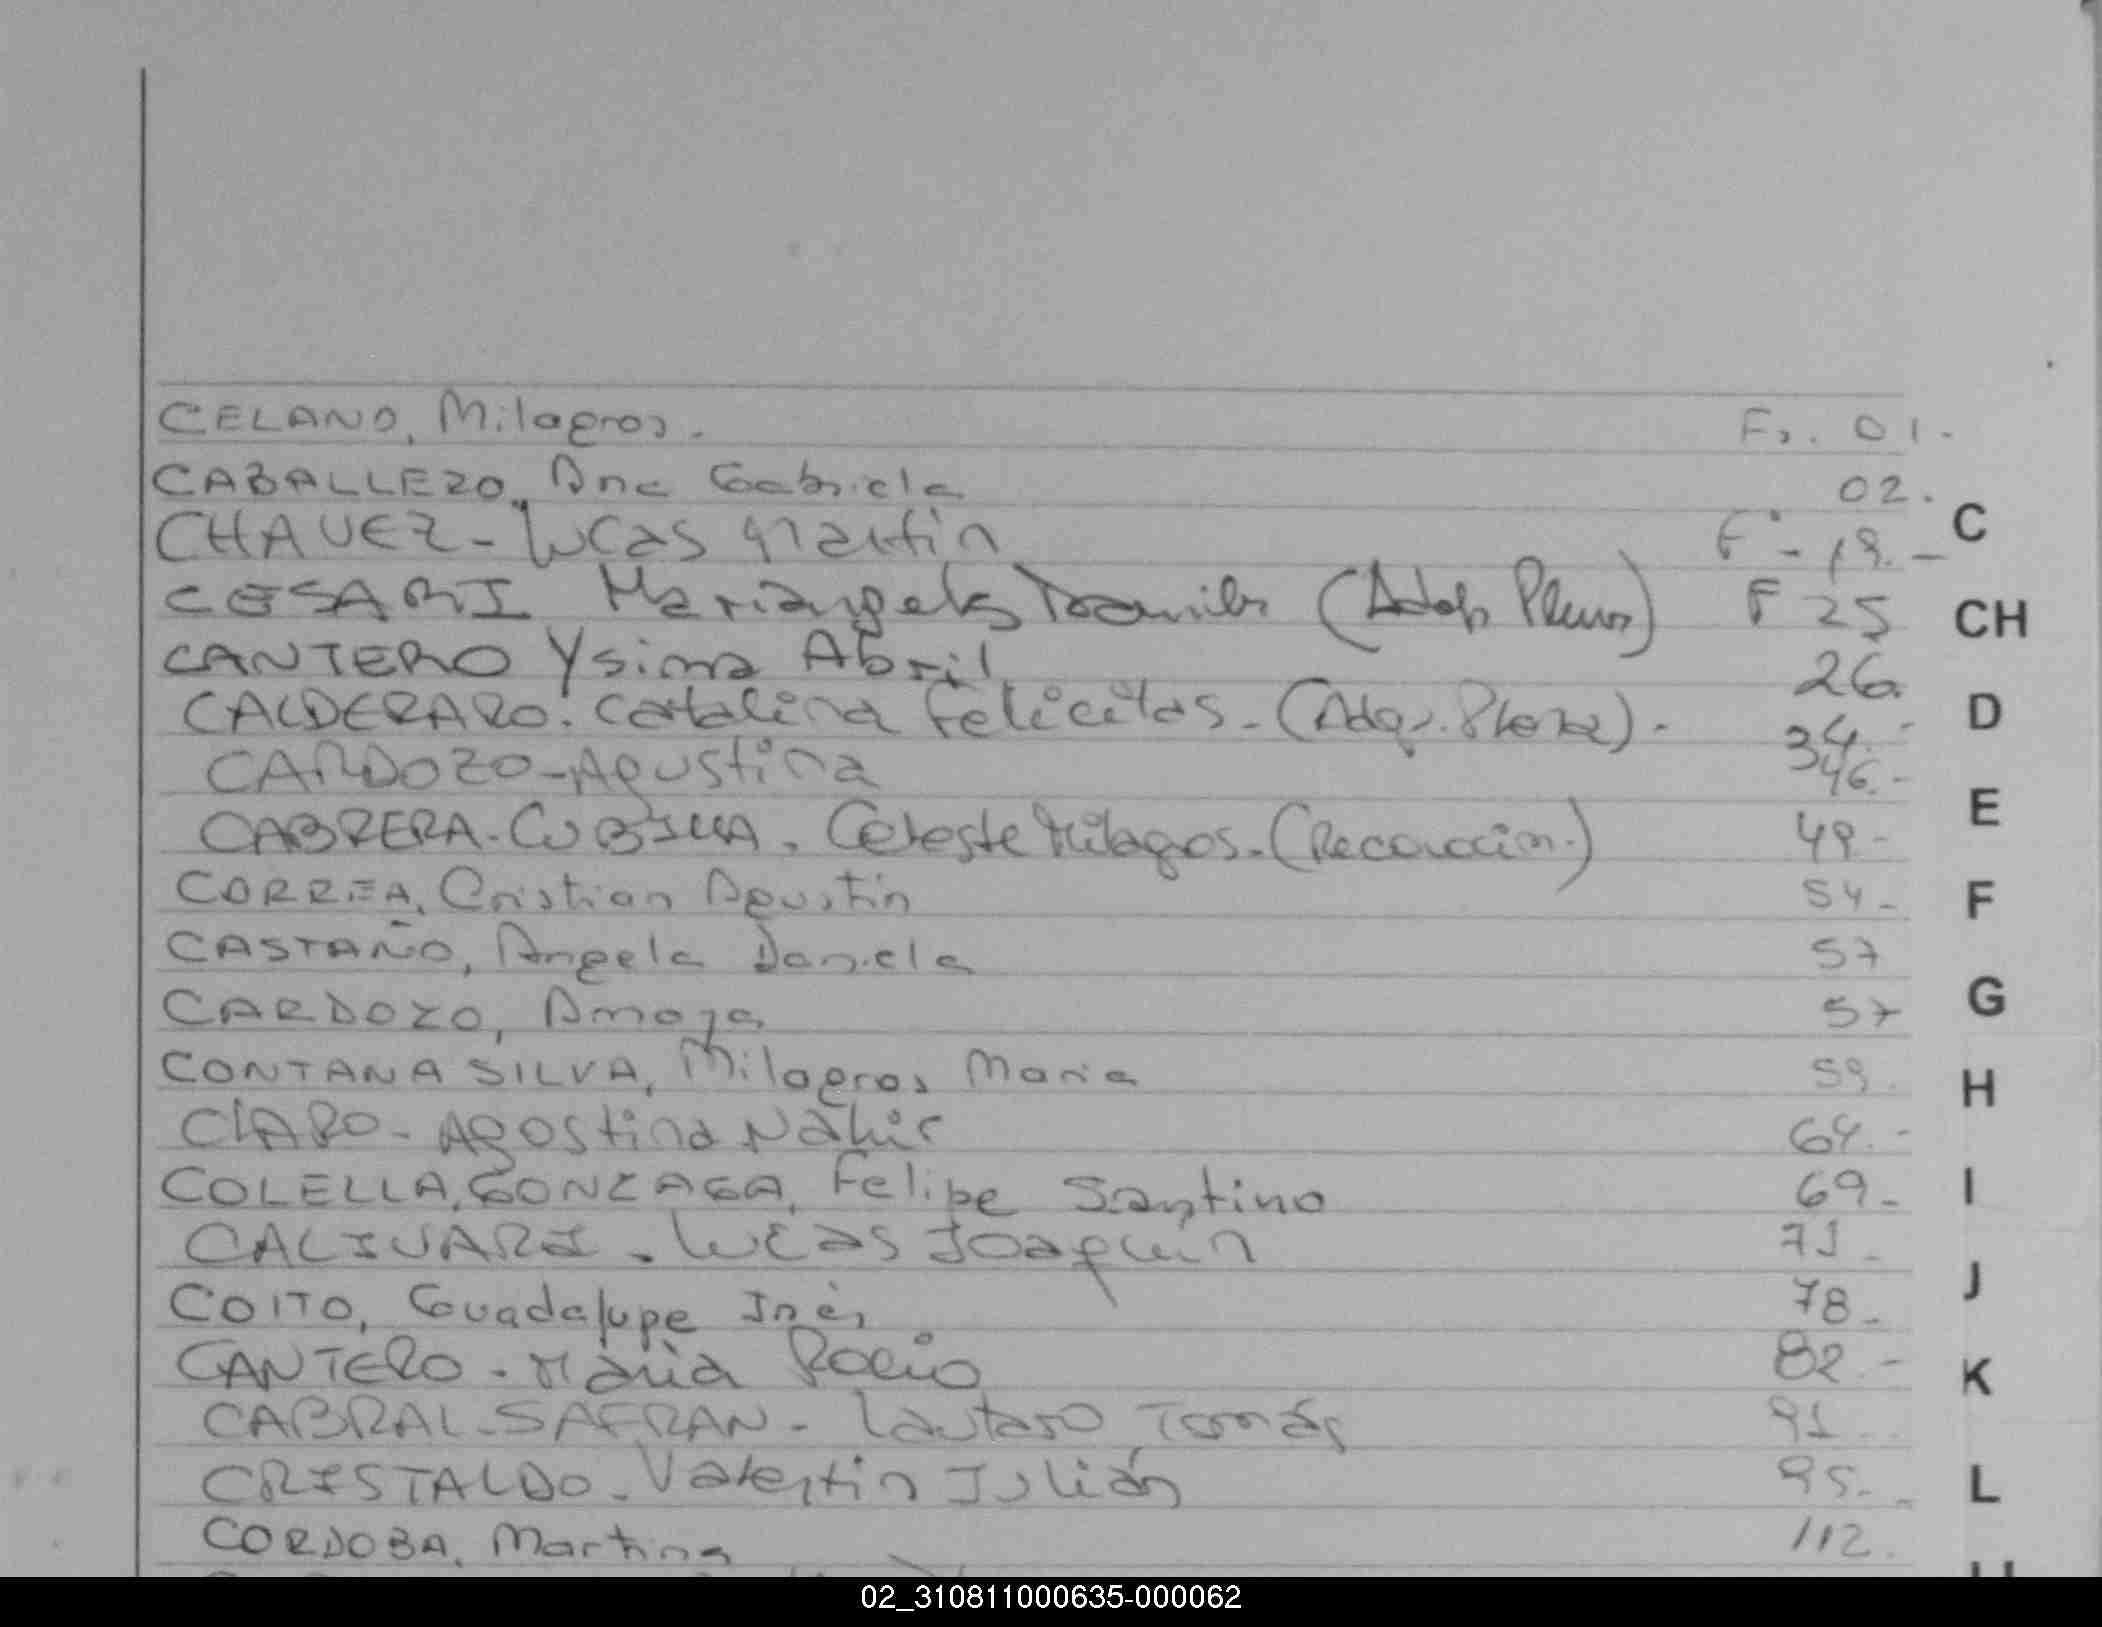 CELANO, Milagros. Fs. 01.
CABALLERO, Ana Gabriela 02.
CHAVEZ - Lucas Martin F° - 19. -
CESARI Mariangeles (Adop Plena) F 25
CANTERO Ysima Abril 26.
CALDERARO. Catalina Felicitas. - (Adop. Plena). - 34. -
CARDOZO - Agustina 46. -
CABRERA - CUBILLA. Celeste Milagros. - 49 -
CORREA, Cristian Agustin 54 -
CASTAÑO, Angela Daniela 57
CARDOZO, Amaya 57
CONTANA SILVA, Milagros Maria 59.
CLARO - Agostina Nahir 64. -
COLELLA, GONZAGA, Felipe Santino 69. -
CALIVARI. Lucas Joaquin 71 -
COITO, Guadalupe Inés 78 -
CANTERO - Maria Rocio 82. -
CABRAL - SAFRAN - Lautaro Tomás 91
CRISTALDO - Valentin Julián 95. -
CORDOBA, Martina 112.
C
CH
D
E
F
G
H
I
J
K
L
02_310811000635-000062